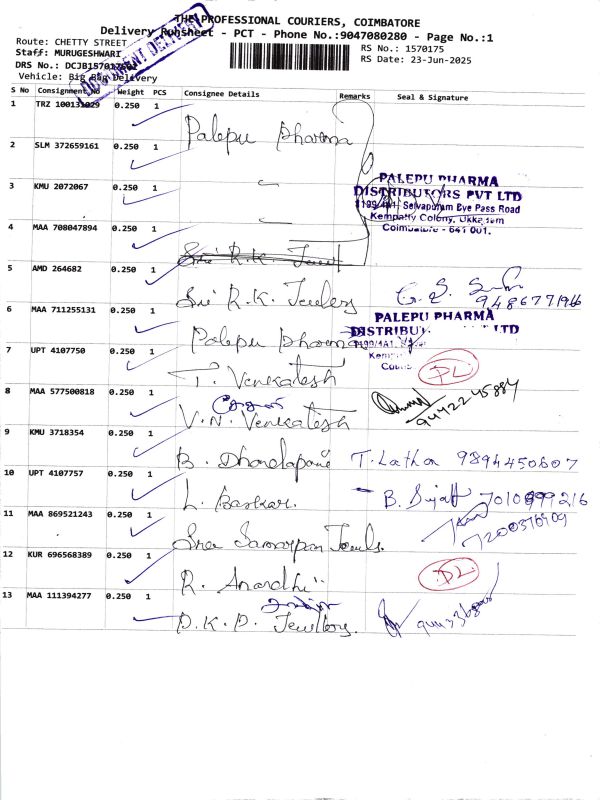 THE PROFESSIONAL COURIERS, COIMBATORE
Delivery Runsheet - PCT - Phone No.:9047080280 - Page No.:1
Route: CHETTY STREET
RS No.: 1570175
Staff: MURUGESHWARI
RS Date: 23-Jun-2025
DRS No.: DCJB1570175
Vehicle: Big Bag Delivery
DOCUMENT DELIVERY
S No Consignment No Weight PCS Consignee Details Remarks Seal & Signature
1 TRZ 100131029 0.250 1 Palepu Pharma
2 SLM 372659161 0.250 1
PALEPU PHARMA
DISTRIBUTORS PVT LTD
1199/4A1, Selvapuram Bye Pass Road
Kempatty Colony, Ukkadam
Coimbatore - 641 001.
3 KMU 2072067 0.250 1
4 MAA 708047894 0.250 1 Sri R.K. Jewel
5 AMD 264682 0.250 1 Sri R.K. Jewlery
9486771966
6 MAA 711255131 0.250 1 Palepu Pharma
PALEPU PHARMA
DISTRIBU LTD
7 UPT 4107750 0.250 1 T. Venkatesh
DL
8 MAA 577500818 0.250 1 V.N. Venkatesh
9442245884
9 KMU 3718354 0.250 1 B. Dhanalapani T. Latha 9894450607
10 UPT 4107757 0.250 1 L. Baskar. B. Sujatt 7010899216
11 MAA 869521243 0.250 1 Sree Samarpan Jewels.
7200376909
12 KUR 696568389 0.250 1 R. Anandhi
DL
13 MAA 111394277 0.250 1 D.K.D. Jewllery.